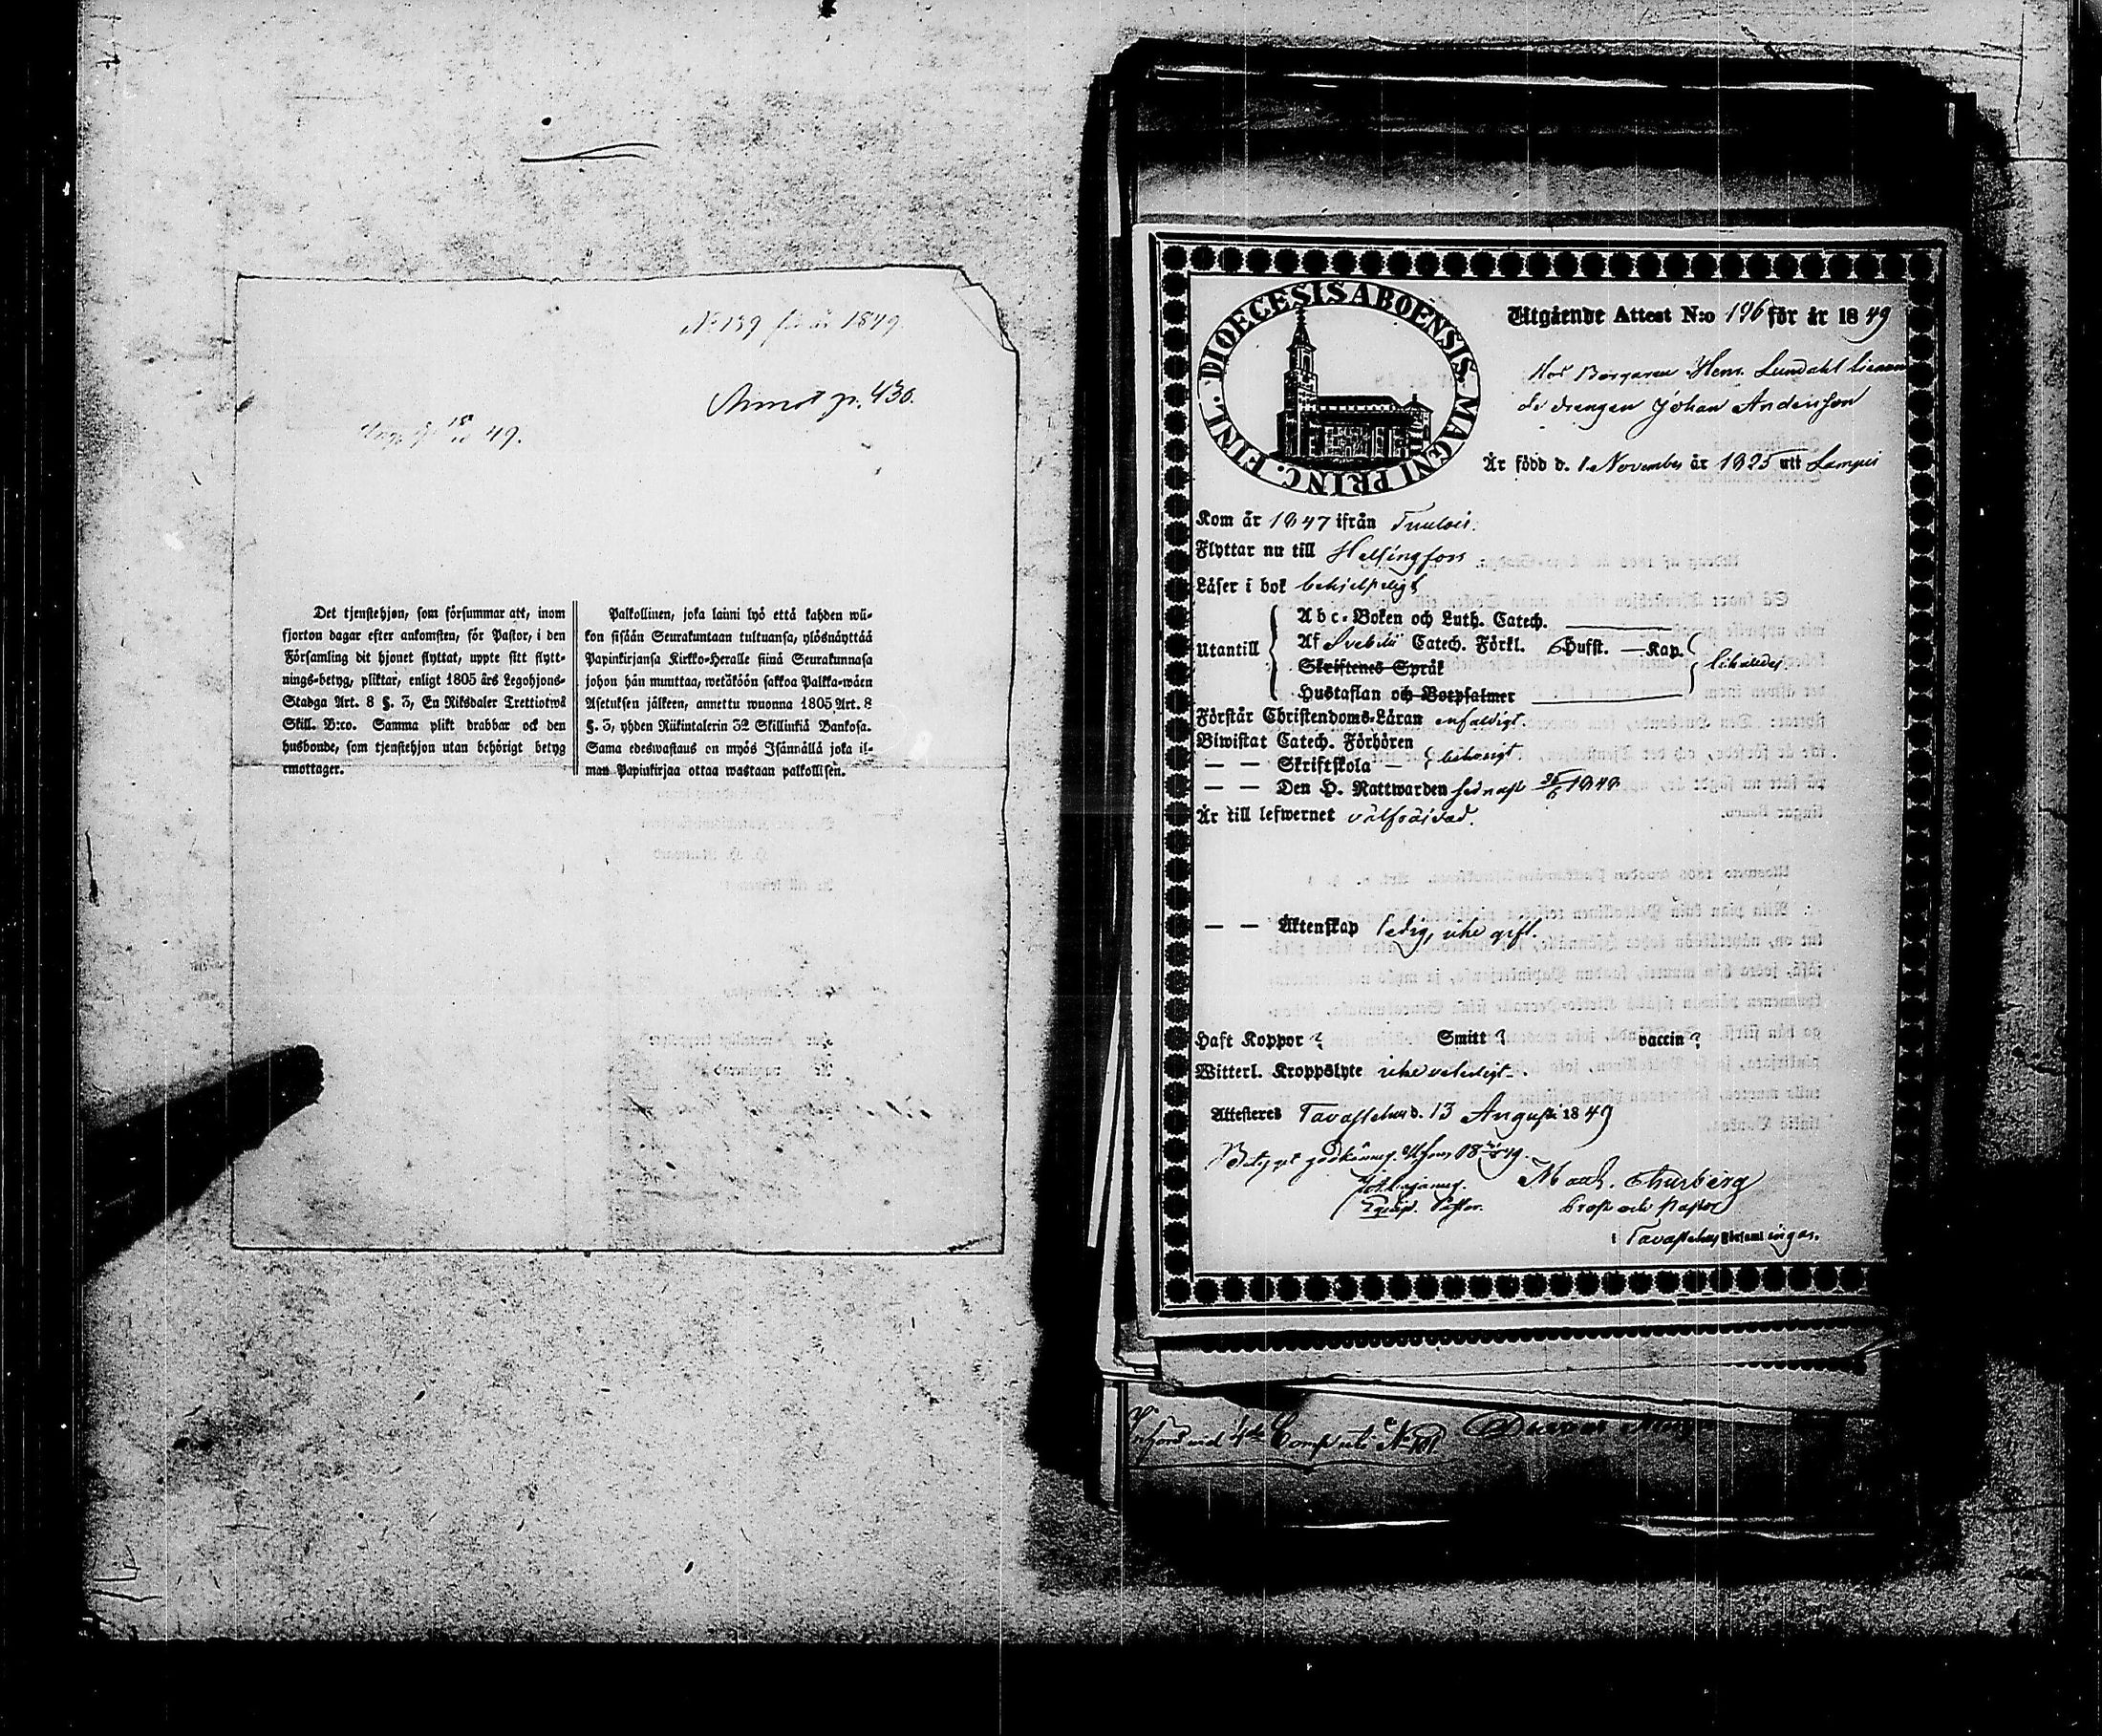 No 139 för år 1849.
Annot p. 430.
49.
Det tjenstehjon, som försummar att, inom
fjorton dagar efter ankomsten, för Pastor, i den
Församling dit hjonet flyttat, uppte sitt flytt-
nings-betyg, pliktar, enligt 1805 års Legohjons-
Stadga Art. 8 §. 3, En Riksdaler Trettiotwå
Skill. B:co. Samma plikt drabbar ock den
husbonde, som tjenstehjon utan behörigt betyg
emottager.
Palkollinen, joka lainni lyö että kahden wii-
kon sisään Seurakuntaan tultuansa, ylösnäyttää
Papinkirjansa Kirkko-Heralle siinä Seurakunnasa
johon hän muuttaa, wetäköön sakkoa Palkka-wäen
Asetuksen jälkeen, annettu wuonna 1805 Art. 8
§. 3, yhden Riikintalerin 32 Skillinkiä Bankosa.
Sama edeswastaus on myös Isännällä joka il-
man Papinkirjaa ottaa wastaan palkollisen.
DIOECESIS ABOENSIS MAGNI PRINC. FINL.
Utgående Attest N:o 196 för år 1849
Hos Borgaren Hem. Lundahl
de drengen Johan Andersson
Är född d. 1 November år 1825 uti Lampis
Kom år 1847 ifrån Tuulois.
Flyttar nu till Helsingfors
Läser i bok behjelpeligt
Utantill
Abc-Boken och Luth. Catech.
Af Svebilii Catech. Förkl. 6 Hufst. — Kap.
Skriftenes Språk
Hustaflan och Botpsalmer
likaledes.
Förstår Christendoms-Läran enfaldigt.
Biwistat Catech. Förhören
— — Skriftskola — behörigt
— — Den H. Nattwarden sednast 1848
Är till lefwernet välfräjdad.
— — Äktenskap ledig, icke gift.
Haft Koppor ? Smitt ? vaccin ?
Witterl. Kroppslyte icke veterligt.
Attesteres Tavastehus d. 13 Augusti 1849
Betyget godkännes. Hfors
Mach. Thurberg
Prost och Pastor
i Tavastehus Församlingar.
Införd vid 4de No